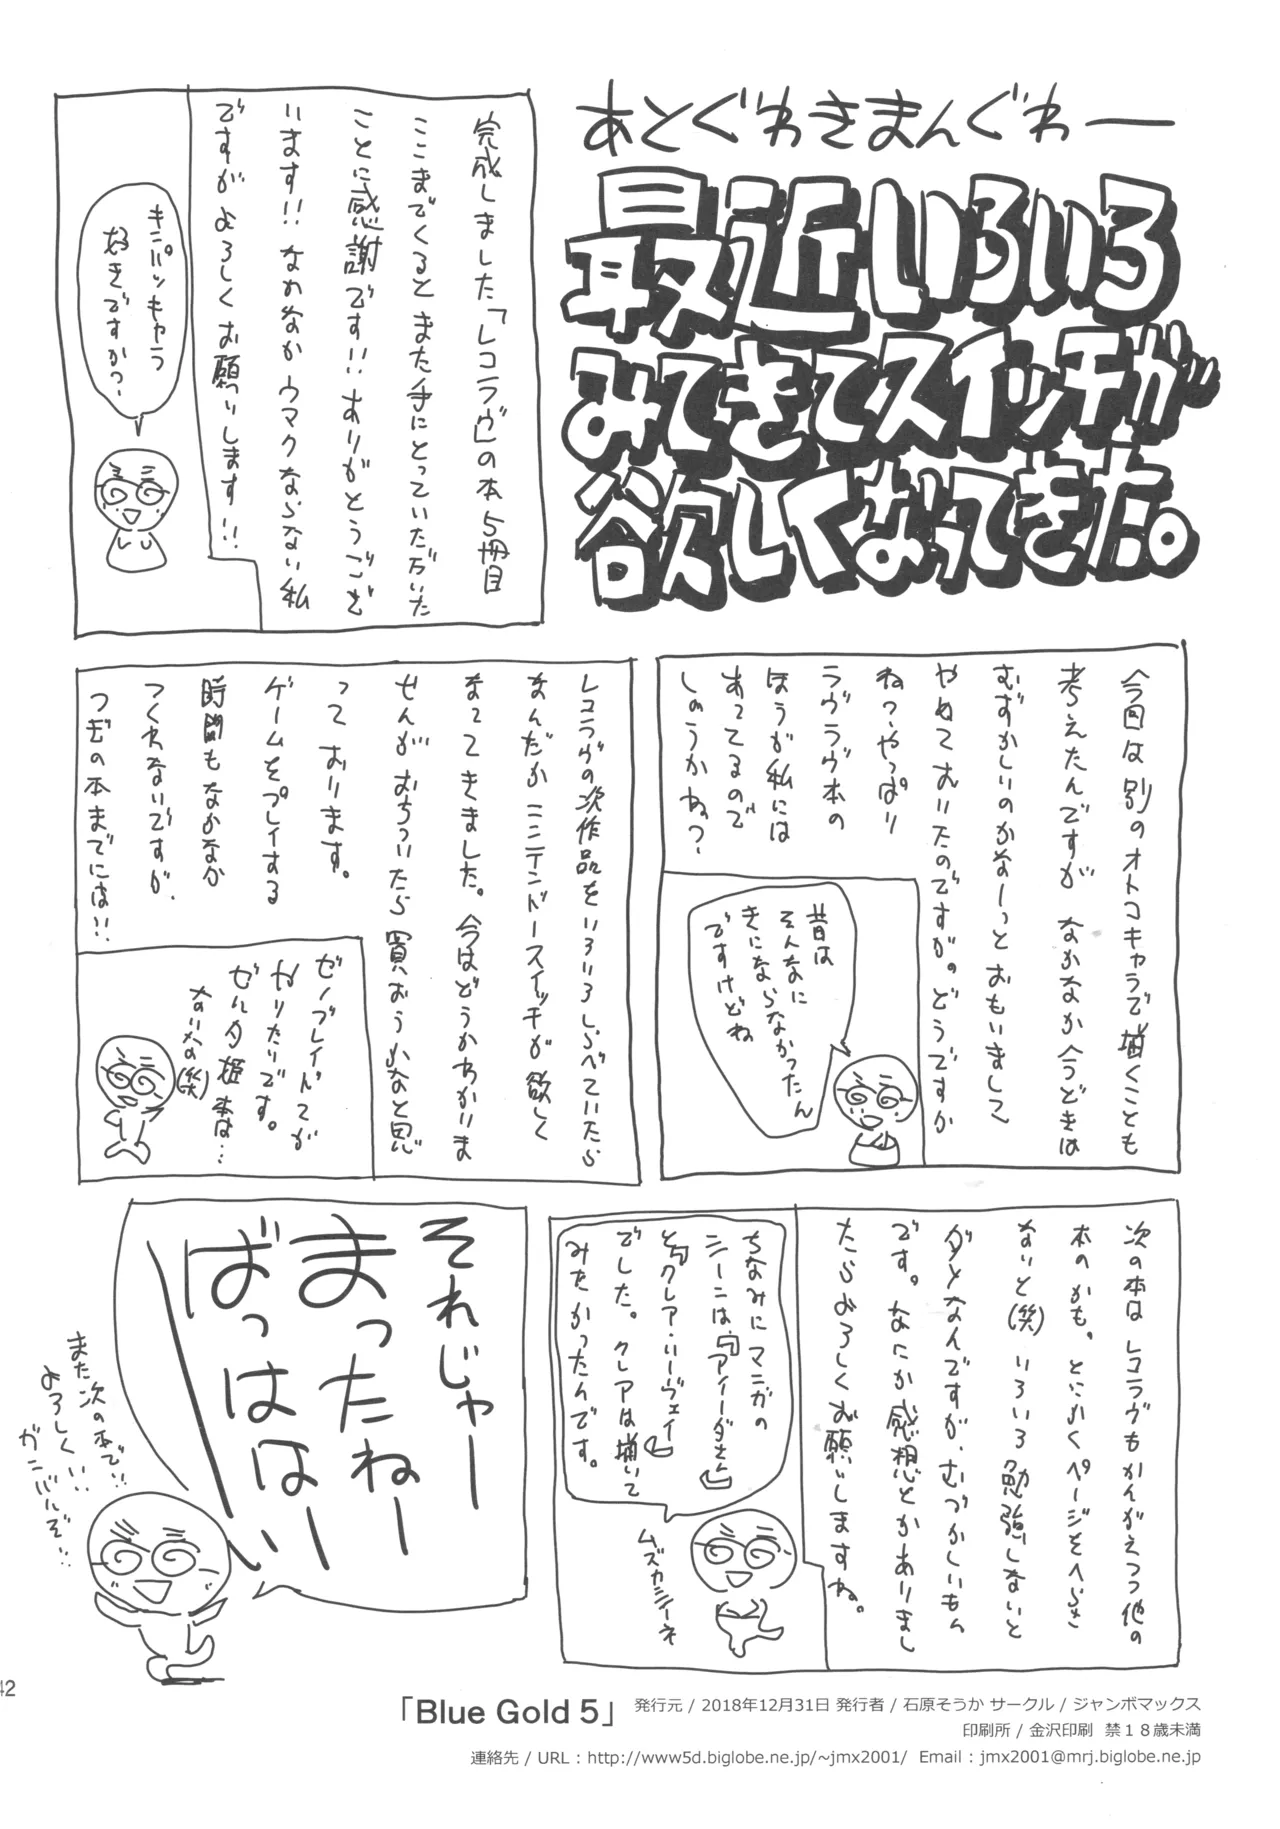 あとぐわきまんぐわー
最近いろいろ
みてきてスイッチが
欲しくなってきた。
完成しました「レコラヴ」の本5冊目
ここまでくるとまた手にとっていただいた
ことに感謝です!!ありがとうござ
います!!なかなかウマクならない私
ですがよろしくお願いします!!
キンパツキャラ
好きですか?
今回は別のオトコキャラで描くことも
考えたんですがなかなか今どきは
むずかしいのかなーっとおもいまして
やめておいたのですが。どうですか
ねっ、やっぱり
ラヴラヴ本の
ほうが私には
あってるので
しょうかね?
昔は
そんなに
きにならなかったん
ですけどね
レコラヴの次作品をいろいろしらべていたら
なんだかニンテンドースイッチが欲しく
なってきました。今はどうかわかりま
せんがおちついたら買おうかなと思
っております。
ゲームをプレイする
時間もなかなか
つくれないですが、
つぎの本までには!!
ゼノブレイドてが
やりたいです。
ゼルダ姫本は…
ないな(笑)
次の本はレコラヴもかんがえつつ他の
本のかも。とにかくページをへらさ
ないと(笑)いろいろ勉強しないと
ダメなんですが、むづかしいもん
です。なにか感想とかありまし
たらよろしくお願いしますね。
ちなみにマンガの
シーンは『アイーダさん』
と『クレア・ハーヴェイ』
でした。クレアは描いて
みたかったんです。
ムズカシイーネ
それじゃー
まったねー
ばっははーい
また次の本で!!
よろしく!!
ガンバルぞ!!
42
「Blue Gold 5」
発行元 / 2018年12月31日 発行者 / 石原そうか サークル / ジャンボマックス
印刷所 / 金沢印刷 禁18歳未満
連絡先 / URL : http://www5d.biglobe.ne.jp/~jmx2001/ Email : jmx2001@mrj.biglobe.ne.jp